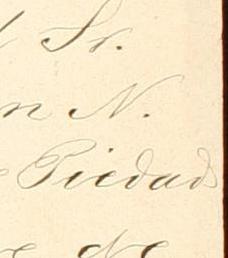 Sr.
n N.
Piedad